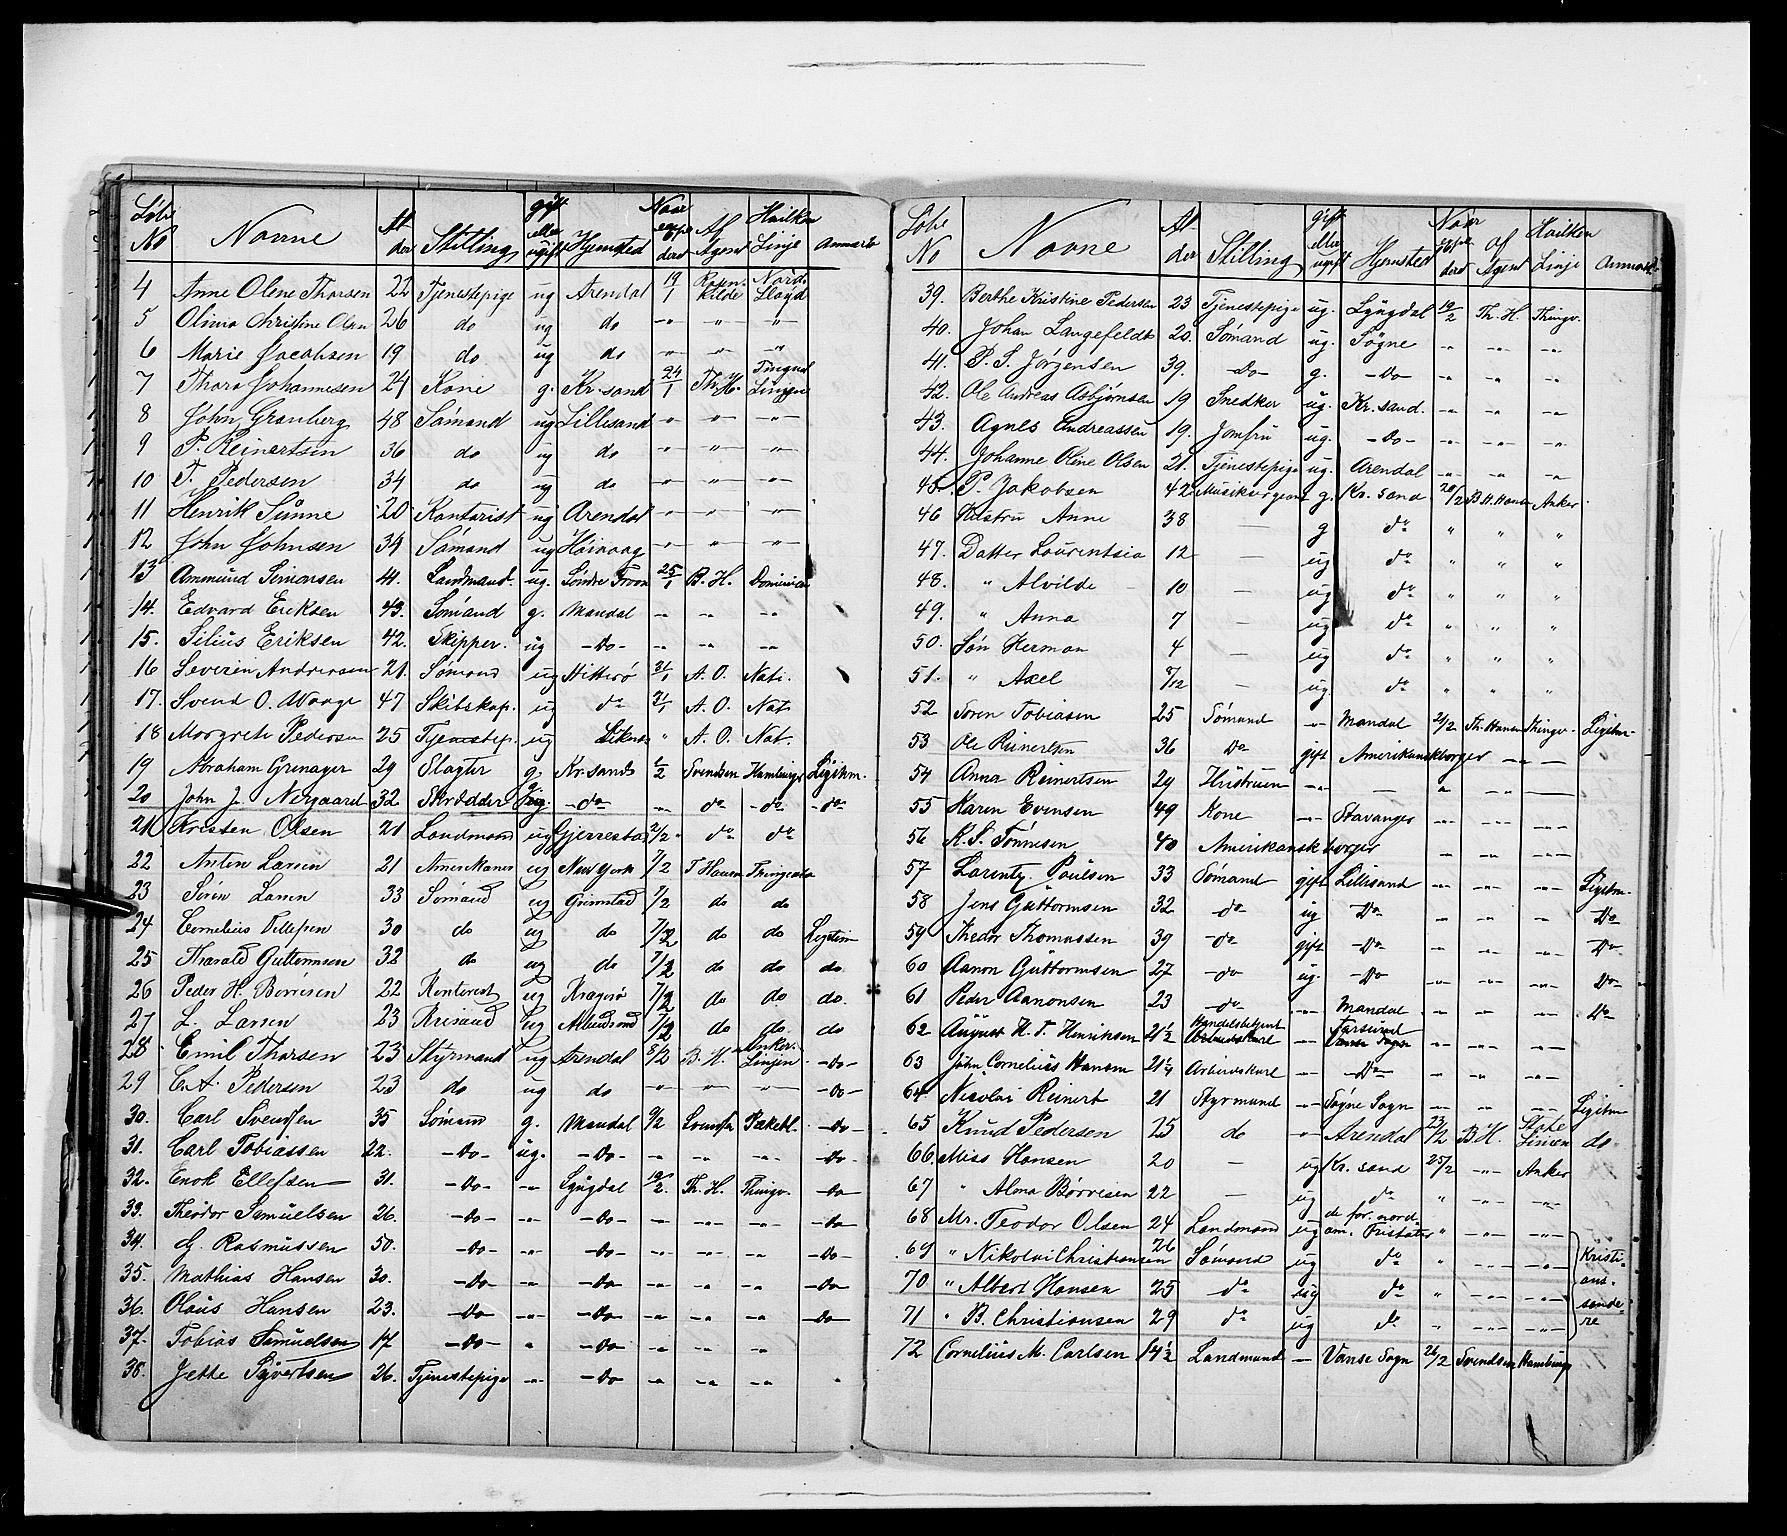 Löbe No Navne Alder Stilling gift eller ugift Hjemsted Naar expederd Af Agent Hvilken Linje Anmærk
4 Anne Olene Thorsen 22 Tjenestepige ug Arendal 19/1 Rosenkilde Nord. Lloyd
5 Olina Christine Olsen 26 do ug do -"- " -"-
6 Marie Jacobsen 19 do ug do -"- " -"-
7 Thara Johannesen 24 Kone g. Kr.sand 24/1 Th. H. Tingval Linjen
8 John Granberg 48 Sömand ug Lillesand " -"- -"-
9 P. Reinertsen 36 do ug do " -"- -"-
10 T. Pedersen 34 do ug do " " -"-
11 Henrik Sünne 20 Kontorist ug Arendal -"- " -"-
12 John Johnsen 34 Sömand ug Höivaag -"- " -"-
13 Ammund Simonsen 41. Landmand. ug. Söndre 25/1 B. H. Dominion
14. Edvard Eriksen 43. Sömand g. Mandal -"- -"- -"-
15. Silius Eriksen 42. Skipper. ug -Do- -"- -"- -"-
16 Severin Andreasen 21. Sömand ug Hitterö 31/1 A. O. Nati.
17. Svend O. Waage 47 Skibskap. ug do 31/1 A. O. Nat.
18 Margrete Pedersen 25 Tjenestep. ug " A. O. Nat.
19 Abraham Grenager 29 Slagter g. Kr.sand 1/2 Svendsen Hamburg Ligitm.
20 John J. Nergaard 32 Skrædder ug. -do- -"- do -do- -do-
21 Kristen Olsen 21 Landmand ug Gjerrestad 2/2 do do
22 Anton Larsen 21 Amerikaner ug New York 7/2 T Hansen Thingvalla
23 Sörin Larsen 33 Sömand ug Grimstad 7/2 do do
24 Cornelius Tellefsen 30 do ug do 7/2 do do Legitim
25 Harald Guttormsen 32 do ug do 7/2 do do do
26 Peder H. Börresen 22 Kontorist ug Kragerö 7/2 do do. do.
27 L. Larsen 23 ug 7/2 do do. do
28 Emil Thorsen 23 Styrmand ug Arendal 8/2 B. H. Anker Linjen -do-
29 C. A. Pedersen 23 do ug do " " -"- -do-
30. Carl Svendsen 35 Sömand g. Mandal 9/2 Svendsen Paketl. -do-
31. Carl Tobiassen 22. -Do- ug. -Do- -"- -"- -"- -Do-
32. Enok Ellefsen 31. -Do- -"- Lyngdal 12/2. Th. H. Thingv. -Do-
33. Theodor Samuelsen 26. -Do- -"- -Do- -"- -"- -"- -Do-
34. G. Rasmussen 50. -Do- -"- -Do- -"- -"- -"- -Do-
35. Mathias Hansen 30. -Do- " -Do- -"- -"- -"- -Do-
36. Olaus Hansen 23. -Do- -"- -Do- -"- -"- -"- -Do-
37. Tobias Samuelsen 17 -Do- " -Do- -"- -"- -"-
38. Jette Sjvertsen 26. Tjenestepige -"- -Do- -"- -"- -"- "
Löbe No Navne Alder Stilling gift eller ugift Hjemsted Naar Expederd af Agent Hvilken Linje Anmærk
39. Berthe Kristine Pedersen 23 Tjenestepige ug. Lyngdal 12/2 Th. H. Thingv.
40. Johan Langefeldt 20. Sömand ug. Sögne -"- -"- -"-
41. P. S. Jörgensen 39. -Do- g. -Do- -"- -"- -"-
42. Ole Andreas Asbjörnsen 19 Snedker ug. Kr.sand. -"- -"- -"-
43. Agnes Andreassen 19. Jomfru ug. -Do- -"- -"- -"-
44. Johanne Oline Olsen 21. Tjenestepige ug. Arendal -"- -"- "
45. P. Jakobsen 42 Musiksergeant g. Kr. sand 20/2 B. H. Hansen Anker
46 Hustru Anne 38 — g do " " "
47. Datter Laurentsia 12 — ug do " " "
48. " Alvilde 10 — ug do " " "
49. " Anna 7 — ug do " " "
50. Sön Herman 4 — ug do " " "
51. " Axel 8/12 — ug do " " "
52 Soren Tobiasen 25 Sömand -"- Mandal 21/2 Th. Hansen Thingv. Ligitm.
53 Ole Reinertsen 36 Do gift Amerikanskborger -"- -"- -"-
54 Anna Reinertsen 29 Hustruen -"- — " -"-
55 Karen Evensen 49 Kone -"- Stavanger -"- -"- -"-
56 K. S. Tönnesen 40 Amerikansk borger -"- -"- -"-
57 Lorentz Poulsen 33 Sömand gift Lillesand -"- -"- -"- Ligitm.
58 Jens Güttormsen 32 -do- ug -Do- -"- -"- -"- Do
59 Thedor Thomassen 39 -do- gift -Do- -"- -"- -"- -Do-
60 Aanon Güttormsen 27 -do- ug. -Do -"- -"- -"- Do
61 Peder Aanonsen 23 -do- -"- Mandal -"- -"- -"- Do
62 August H. T. Henriksen 21 1/2 Handelsbetjent -"- Farsund -"- -"- -"-
63 John Cornelius Hansen 21 1/4 Arbeidskarl -"- -Do- -"- -"- -"-
64 Nicolai Reinert 21 Styrmand -"- Sögne Sogn -"- -"- -"- Ligitm.
65 Knud Pedersen 25 do " Arendal 23/2 B H. State Linien do
66. Miss Hansen 20 — ug Kr. sand 25/2 -"- Anker
67 " Alma Börresen 22 — ug do " -"- -"-
68 Mr. Teodor Olsen 24 Landmand ug de for. nord am. Fristater " -"- -"-
69 " Nikolai Christiansen 26 Sömand ug do " -"- -"- Kristi-
70 " Albert Hansen 25 do ug do " -"- -"- ans-
71 " B. Christiansen 29 do ug do " -"- -"- sandere
72 Cornelius M. Carlsen 14 1/2 Landmand — Vanse Sogn 26/2 Svendsen Hamburg